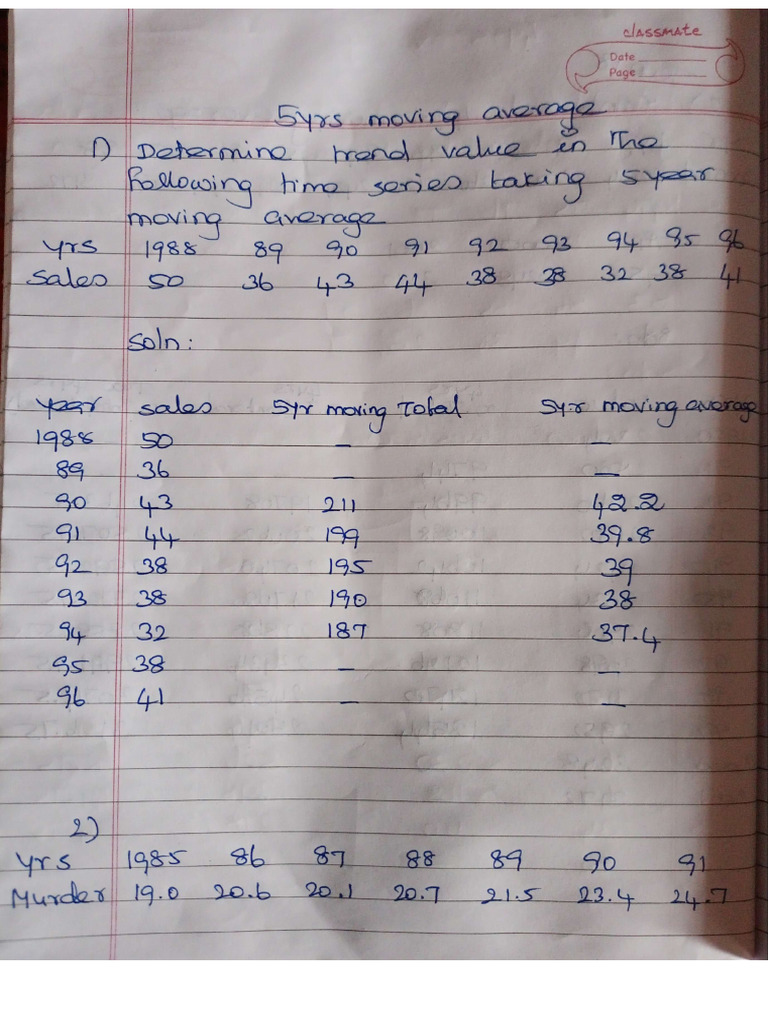 classmate
Date
Page
5yrs moving average
1) Determine trend value in The
following time series taking 5year
moving average
yrs 1988 89 90 91 92 93 94 95 96
Sales 50 36 43 44 38 38 32 38 41
Soln:
year sales 5yr moving Total 5yr moving average
1988 50 — —
89 36 — —
90 43 211 42.2
91 44 199 39.8
92 38 195 39
93 38 190 38
94 32 187 37.4
95 38 — —
96 41 — —
2)
yrs 1985 86 87 88 89 90 91
Murder 19.0 20.6 20.1 20.7 21.5 23.4 24.7